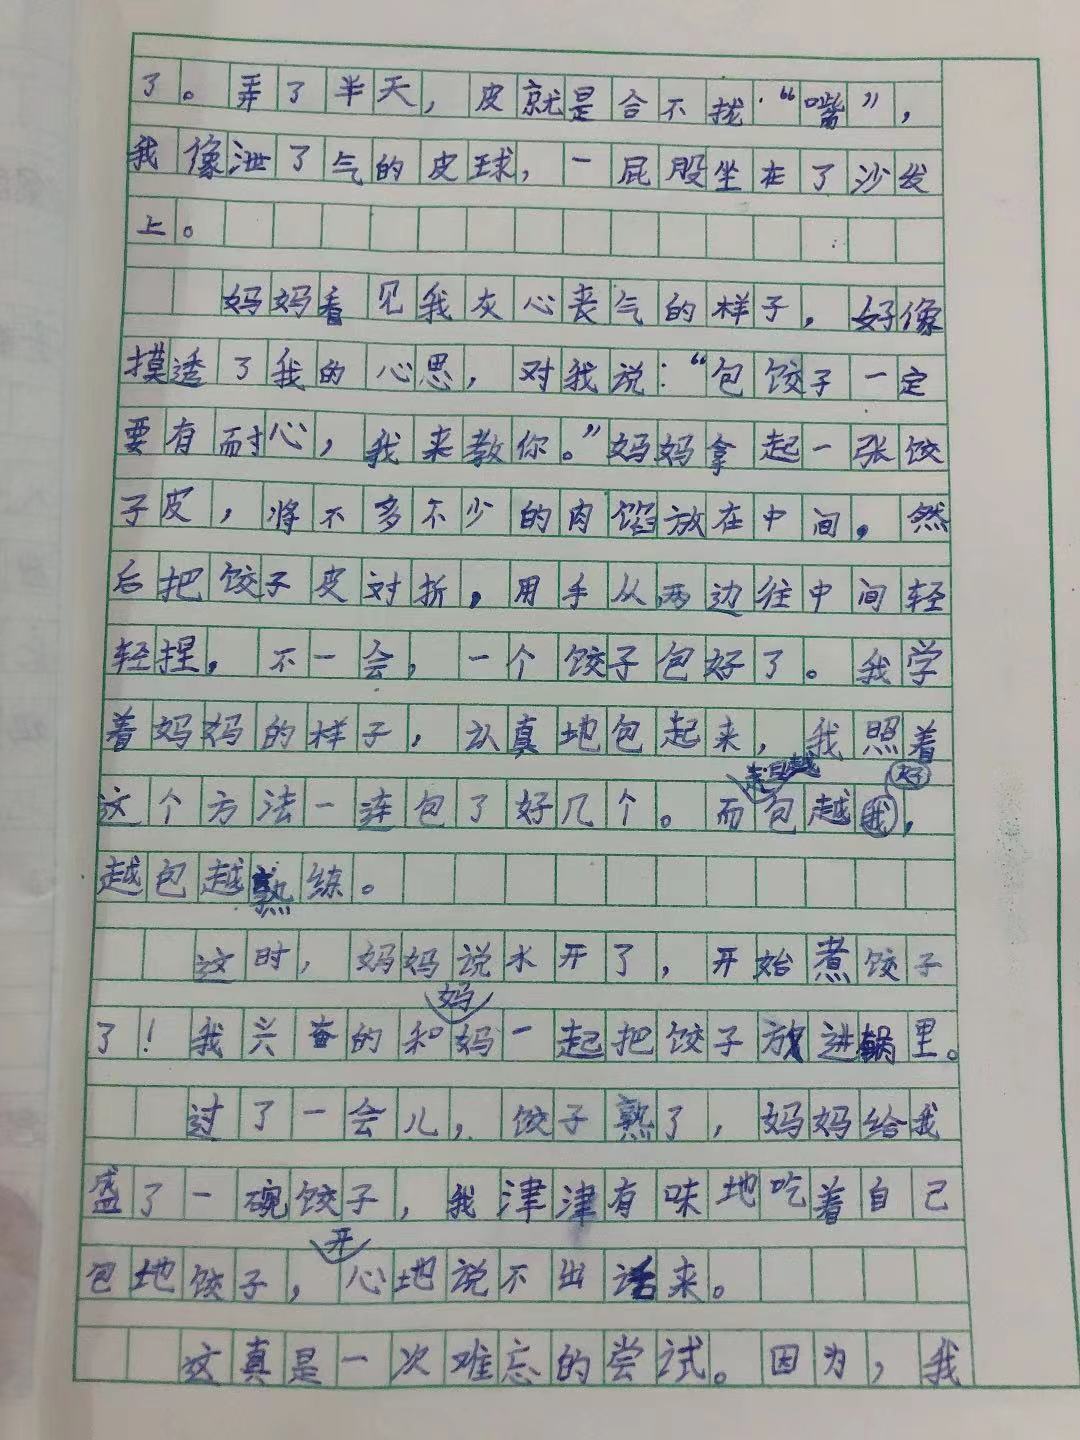 了。弄了半天，皮就是合不拢“嘴”，
我像泄了气的皮球，一屁股坐在了沙发
上。
妈妈看见我灰心丧气的样子，好像
摸透了我的心思，对我说：“包饺子一定
要有耐心，我来教你。”妈妈拿起一张饺
子皮，将不多不少的肉馅放在中间，然
后把饺子皮对折，用手从两边往中间轻
轻捏，不一会，一个饺子包好了。我学
着妈妈的样子，认真地包起来，我照着
这个方法一连包了好几个。而且越包越好，
越包越熟练。
这时，妈妈说水开了，开始煮饺子
了！我兴奋的和妈妈一起把饺子放进锅里。
过了一会儿，饺子熟了，妈妈给我
盛了一碗饺子，我津津有味地吃着自己
包地饺子，开心地说不出话来。
这真是一次难忘的尝试。因为，我